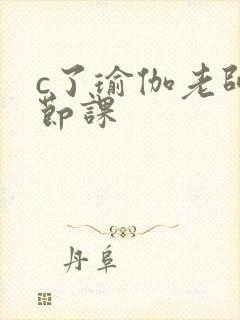 c了瑜伽老師
節課
丹阜